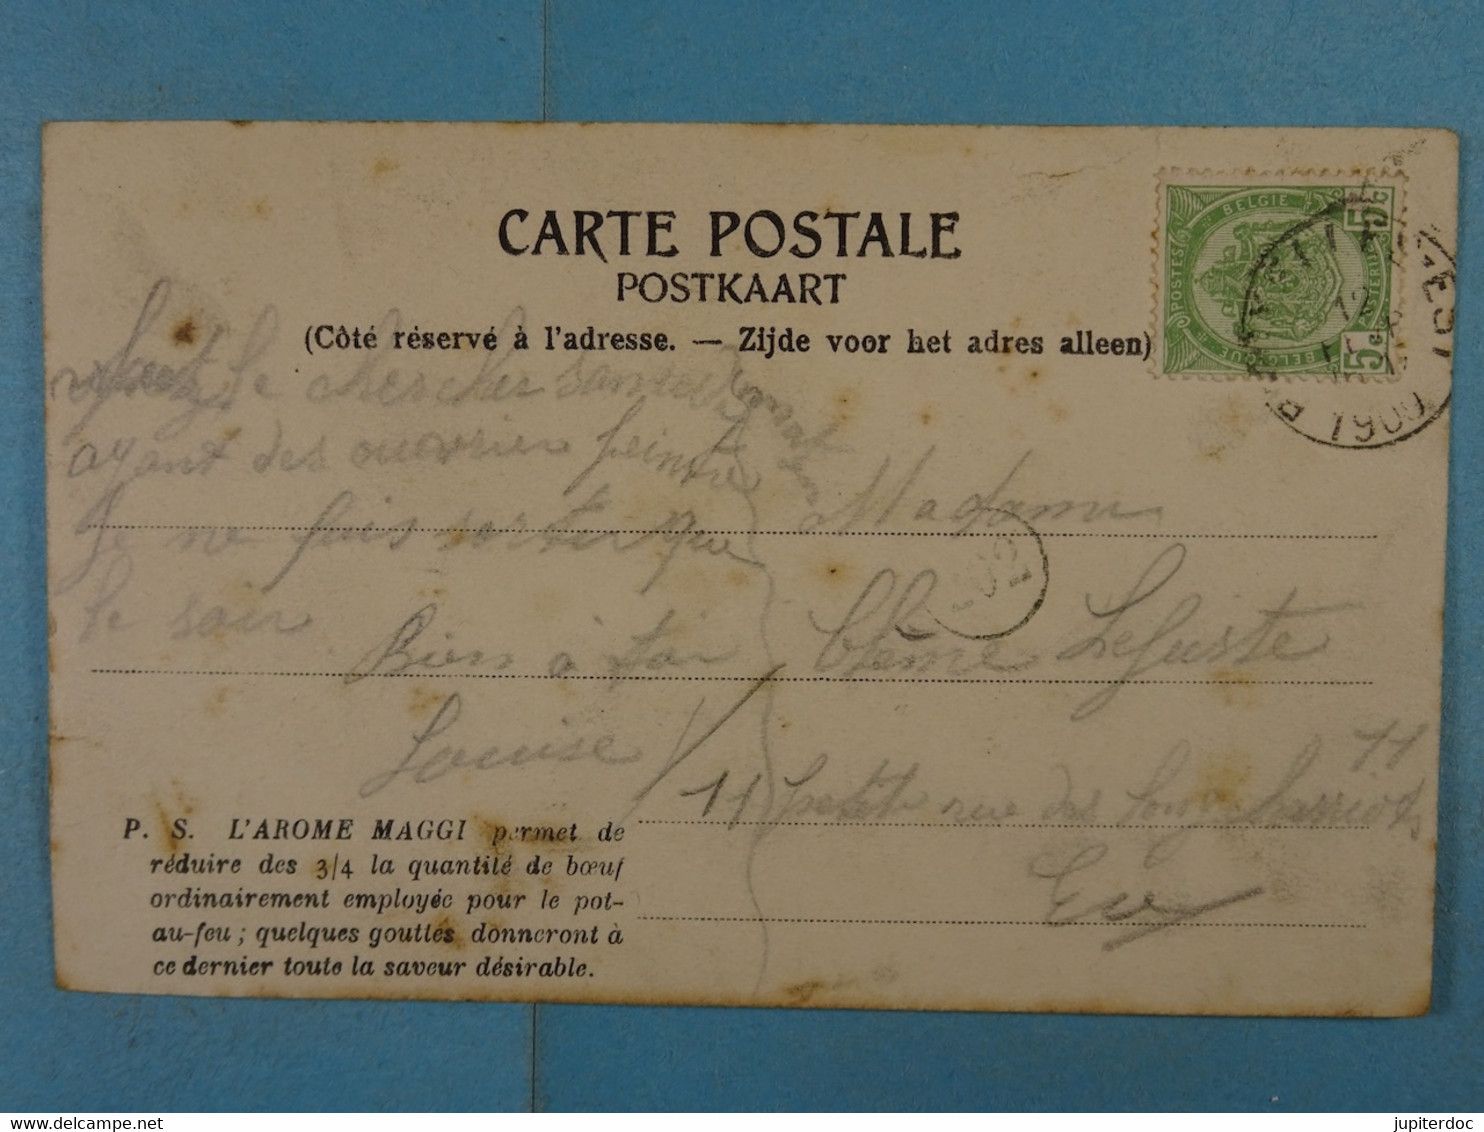 CARTE POSTALE
POSTKAART
(Côté réservé à l'adresse. — Zijde voor het adres alleen)
BELGIE
POSTES
POSTERIJEN
BELGIQUE
5c
5c
12
1900
le chercher samedi
ayant des ouvrier peintre
Je ne fais sortir que
le soir
Bien à toi
Louise
Madame
202
Clême Lejuste
11 petit rue des Longs Chariots 11
Ev
P. S. L'AROME MAGGI permet de
réduire des 3/4 la quantité de bœuf
ordinairement employée pour le pot-
au-feu ; quelques gouttes donneront à
ce dernier toute la saveur désirable.
jupiterdoc